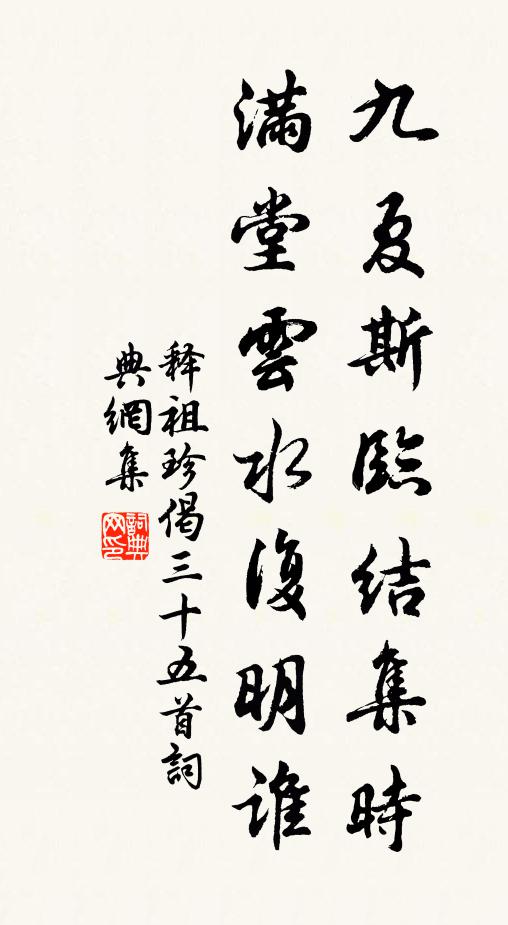 九夏斯臨結集時
滿堂雲水復明誰
释祖珍偈三十五首詞
典網集
詞典
网印